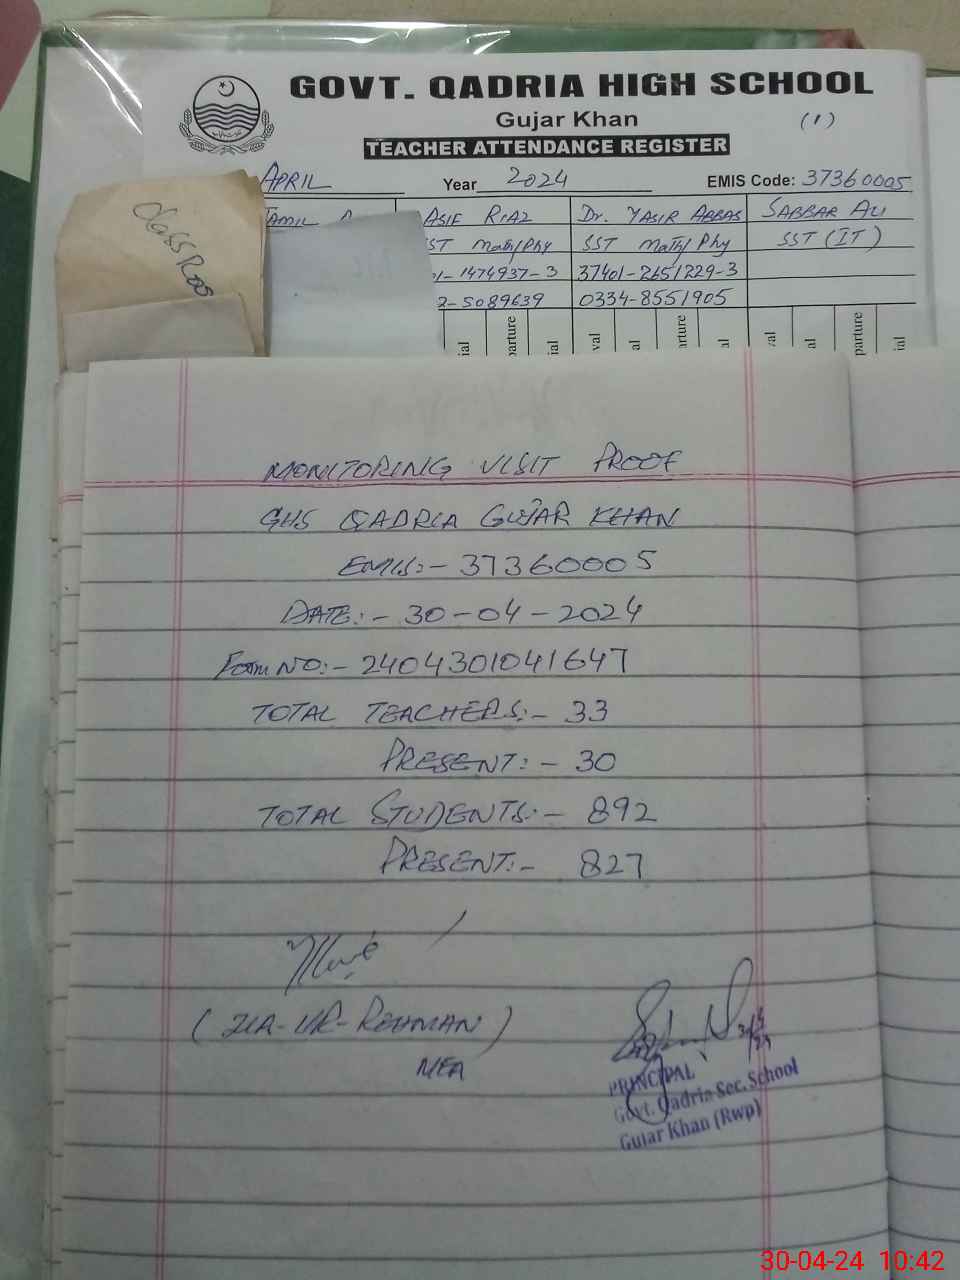 GOVT. QADRIA HIGH SCHOOL
Gujar Khan
(1)
TEACHER ATTENDANCE REGISTER
APRIL Year 2024 EMIS Code: 37360005
ASIF RIAZ Dr. YASIR ABBAS SABBAR ALI
ST Math/Phy SST Math/Phy SST (IT)
1-1474937-3 37401-2651229-3
2-5089639 0334-8551905
ial parture ial val al arture al val al parture ial
Class Ros
MONITORING VISIT PROOF
GHS QADRIA GUJAR KHAN
EMIS:- 37360005
DATE:- 30-04-2024
Form NO:- 2404301041647
TOTAL TEACHERS:- 33
PRESENT:- 30
TOTAL STUDENTS:- 892
PRESENT:- 827
(ZIA-UR-REHMAN)
MEA
PRINCIPAL
Govt. Qadria Sec. School
Gujar Khan (Rwp)
30-04-24 10:42